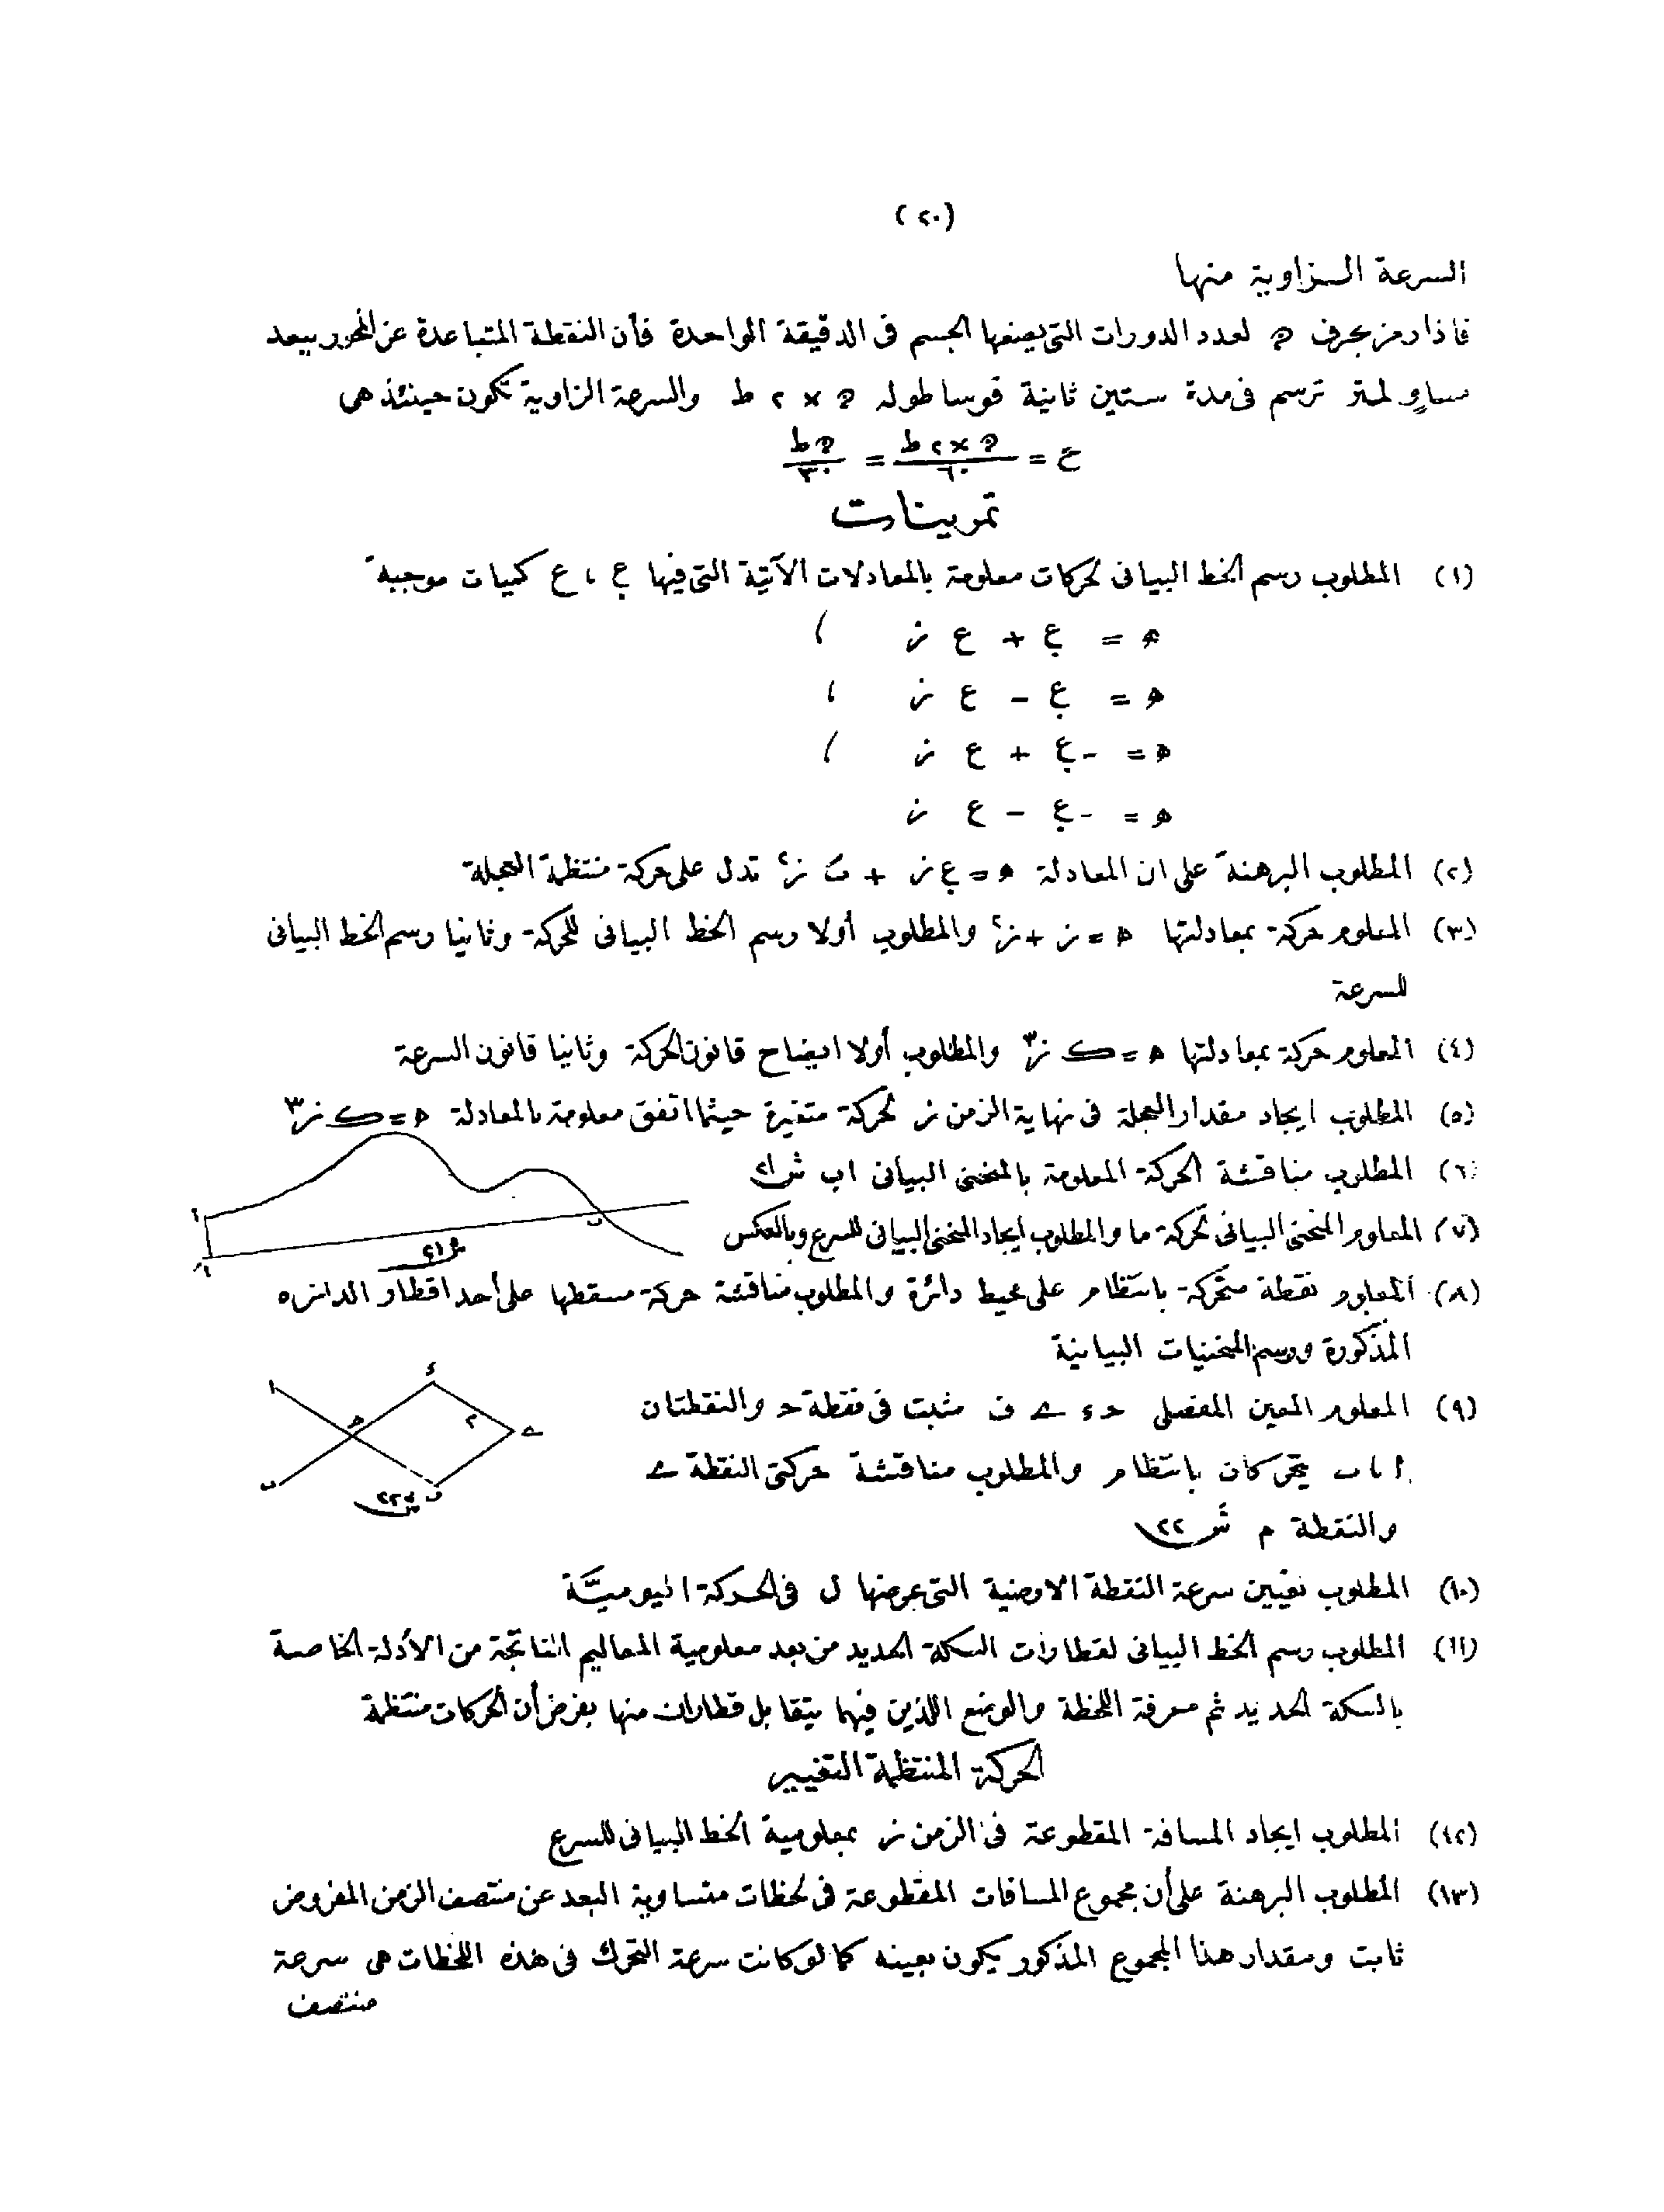 (٢٠)
السرعة الزاوية منها
فاذا رمز بحرف ﻫ لعدد الدورات التى يصنعها الجسم فى الدقيقة الواحدة فأن النقطة المتباعدة عن المحور ببعد
مساوٍ لمتر ترسم فى مدة ستين ثانية قوسا طوله ﻫ × ٢ ط والسرعة الزاوية تكون حينئذ هى
ع = ﻫ × ٢ ط / ٦٠ = ﻫ ط / ٣٠
تمرينات
(١) المطلوب رسم الخط البيانى لحركات معلومة بالمعادلات الآتية التى فيها ع ، ع كميات موجبة
ﻫ = ع + ع ز ،
ﻫ = ع − ع ز ،
ﻫ = -ع + ع ز ،
ﻫ = -ع − ع ز
(٢) المطلوب البرهنة على ان المعادلة ﻫ = ع ز + ز٢ تدل على حركة منتظمة العجلة
(٣) المعلوم حركة بمعادلتها ﻫ = ز + ز٢ والمطلوب أولا رسم الخط البيانى للحركة وثانيا رسم الخط البيانى
للسرعة
(٤) المعلوم حركة بمعادلتها ﻫ = ك ز٣ والمطلوب أولا ايضاح قانون الحركة وثانيا قانون السرعة
(٥) المطلوب ايجاد مقدار العجلة فى نهاية الزمن ز لحركة متغيرة حيثما اتفق معلومة بالمعادلة ﻫ = ك ز٣
(٦) المطلوب مناقشة الحركة المعلومة بالمنحنى البيانى ا ب ش ٢١
ا
ب
ا
ش ٢١
(٧) المعلوم المنحنى البيانى لحركة ما والمطلوب ايجاد المنحنى البيانى للسرع وبالعكس
(٨) المعلوم نقطة متحركة بانتظام على محيط دائرة والمطلوب مناقشة حركة مسقطها على أحد اقطار الدائره
المذكورة ورسم المنحنيات البيانية
(٩) المعلوم المعين المفصلى حـ ء ے ف مثبت فى نقطة حـ والنقطتان
ا ، ب يتحركان بانتظام والمطلوب مناقشة حركتى النقطة ے
والنقطة م ش ٢٢
ا
ء
حـ
م
ے
ب
ف
ش ٢٢
(١٠) المطلوب تعيين سرعة النقطة الارضية التى عرضها ل فى الحركة اليوميَّة
(١١) المطلوب رسم الخط البيانى لقطارات السكة الحديد من بعد معلومية المعاليم الناتجة من الأدلة الخاصة
بالسكة الحديد ثم معرفة اللحظة والوضع اللذين فيهما يتقابل قطاران منها بفرض أن الحركات منتظمة
الحركة المنتظمة التغيير
(١٢) المطلوب ايجاد المسافة المقطوعة فى الزمن ز بمعلومية الخط البيانى للسرع
(١٣) المطلوب البرهنة على أن مجموع المسافات المقطوعة فى لحظات متساوية البعد عن منتصف الزمن المفروض
ثابت ومقدار هذا المجموع المذكور يكون بعينه كما لو كانت سرعة التحرك فى هذه اللحظات هى سرعة
منتصف